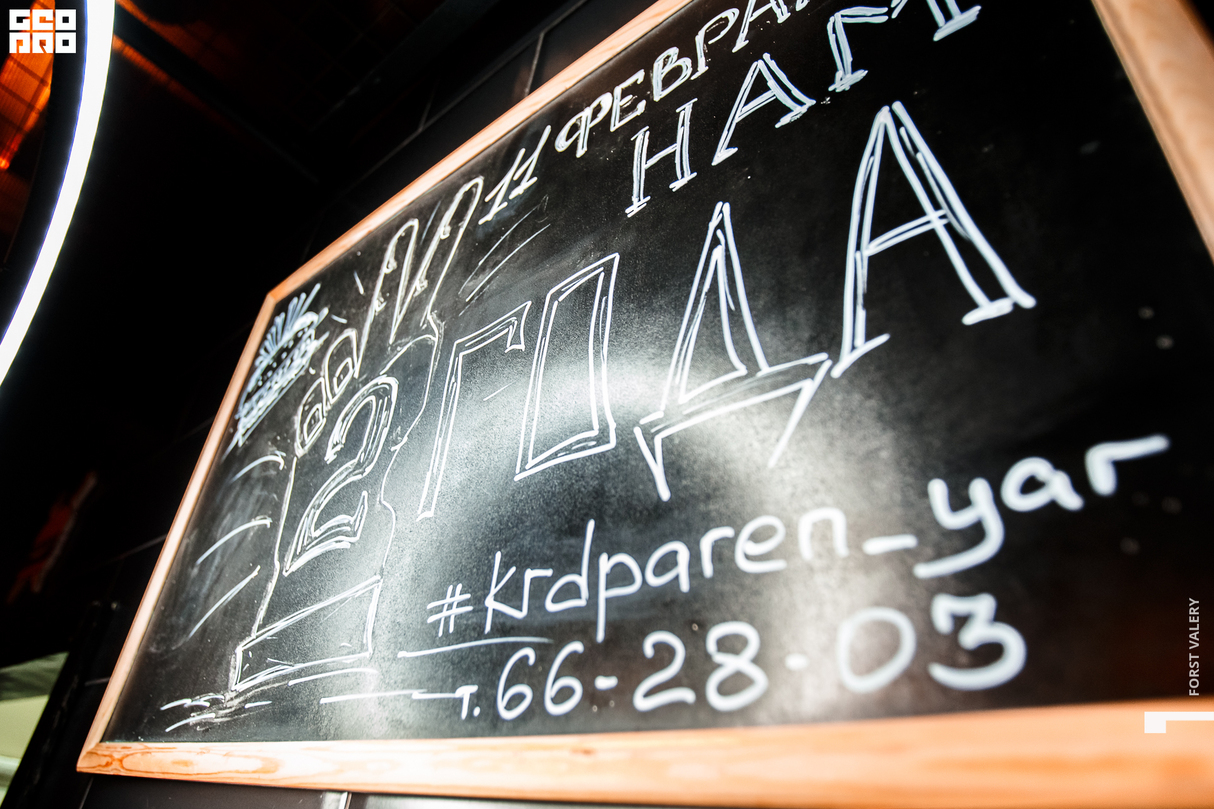 GEO
PRO
11 ФЕВРА
НАМ
2
ГОДА
#krdparen_yar
т.66-28-03
FORST VALERY